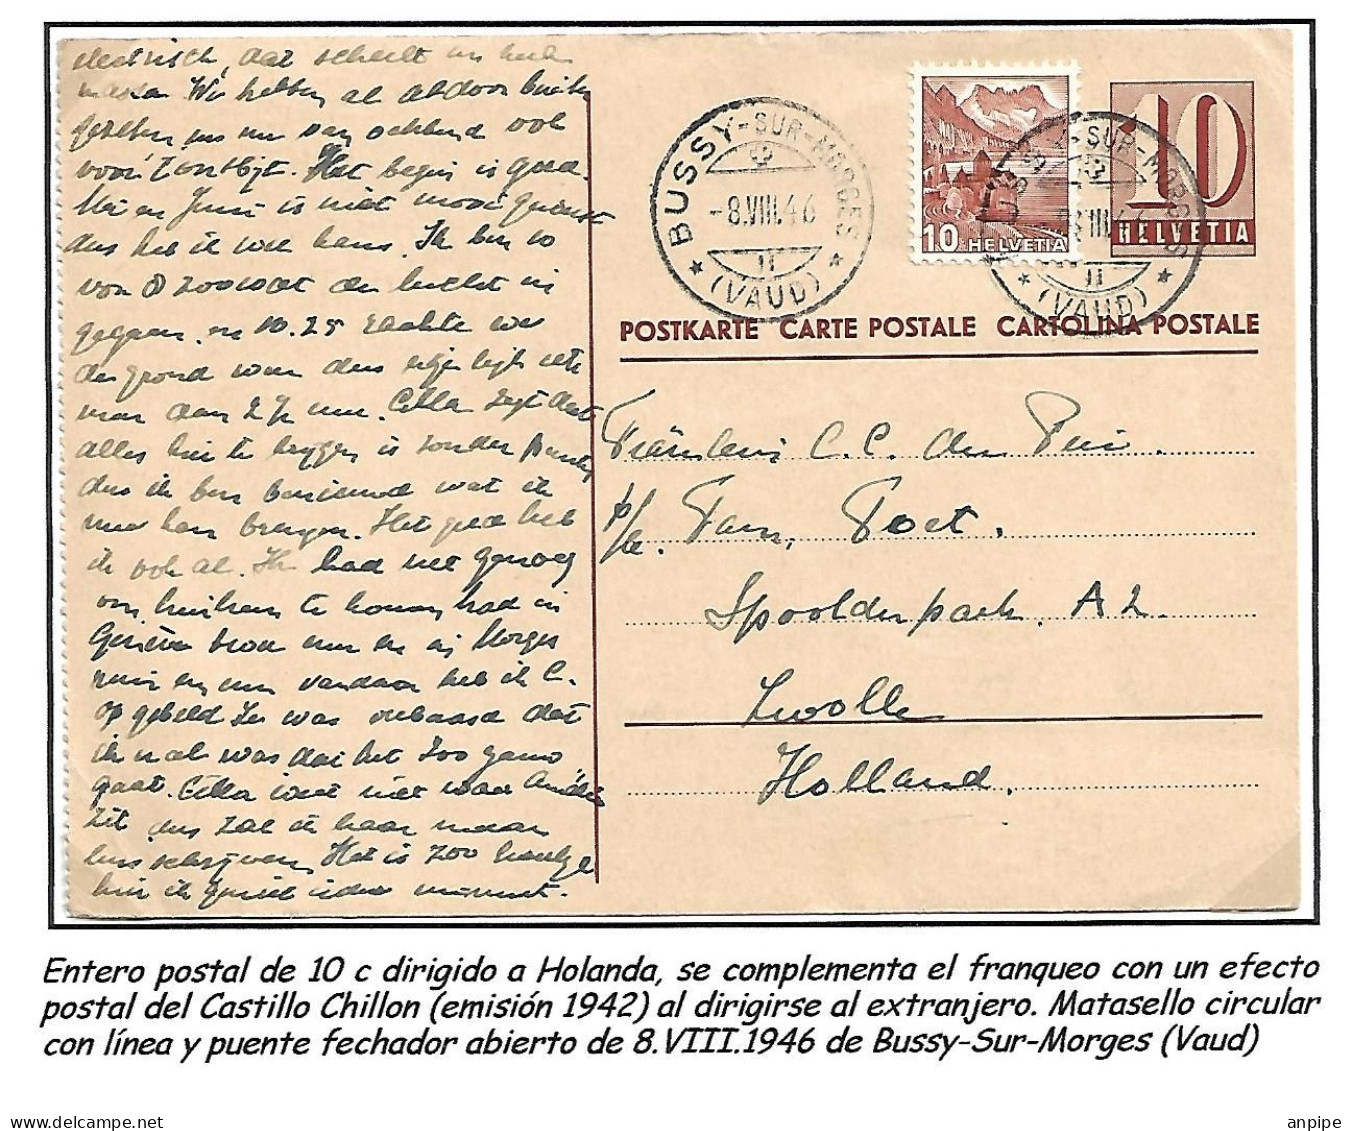 electrisch, dat scheelt een heele
massa. We hebben al aldoor buiten
gezeten en nu van ochtend ook
voor 't ontbijt. Het begin is goed.
Mei en Juni is niet mooi geweest
dus heb ik wel kans. Ik ben zo
van de lucht in
gegaan en 10.25 raakte we
de grond weer dus
maar dan 2 ½ uur. Cilla zegt dat
alles hier te krijgen is zonder
dus ik ben benieuwd wat ik
mee kan brengen. Het geld heb
ik ook al. Ik had net genoeg
om hierheen te komen had in
Genève een uur en in Morges
ruim een uur vandaar heb ik C.
opgebeld. Ze was verbaasd dat
ik er al was dat het zoo gauw
gaat. Cilla weet niet waar
zit dus zal ik haar maar
schrijven. Het is zoo
hier ik geniet ieder moment.
BUSSY-SUR-MORGES
-8.VIII.46
11
★ (VAUD) ★
10 HELVETIA
10
HELVETIA
BUSSY-SUR-MORGES
-8.VIII.46
11
★ (VAUD) ★
POSTKARTE CARTE POSTALE CARTOLINA POSTALE
Fräulein C.C. den
p/a. Fam. Poet.
Spoolderpark A2.
Zwolle
Holland.
Entero postal de 10 c dirigido a Holanda, se complementa el franqueo con un efecto
postal del Castillo Chillon (emisión 1942) al dirigirse al extranjero. Matasello circular
con línea y puente fechador abierto de 8.VIII.1946 de Bussy-Sur-Morges (Vaud)
www.delcampe.net
anpipe